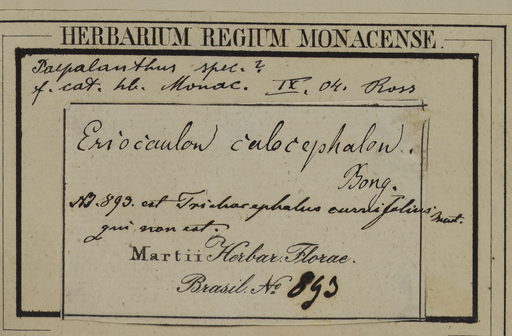 HERBARIUM REGIUM MONACENSE.
Paepalanthus spec. ?
f. cat. hb. Monac. IX. 04. Ross
Eriocaulon calocephalon.
Bong.
N. 893. est Trichocephalus curvifolius Mart.
qui non est.
Martii Herbar. Florae.
Brasil. No 893